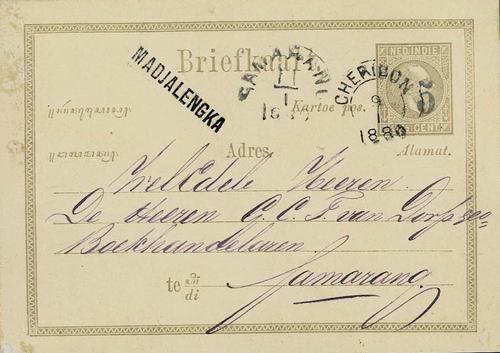 Briefkaart
NED. INDIE
5
CENT
MADJALENGKA
SAMARANG
11
1
CHERIBON
9
1
1880
Kartoe pos.
Adres.
Alamat.
WelEdele Heeren
De Heeren G. C. T. van Dorp & Co
Boekhandelaren
te
di
Samarang